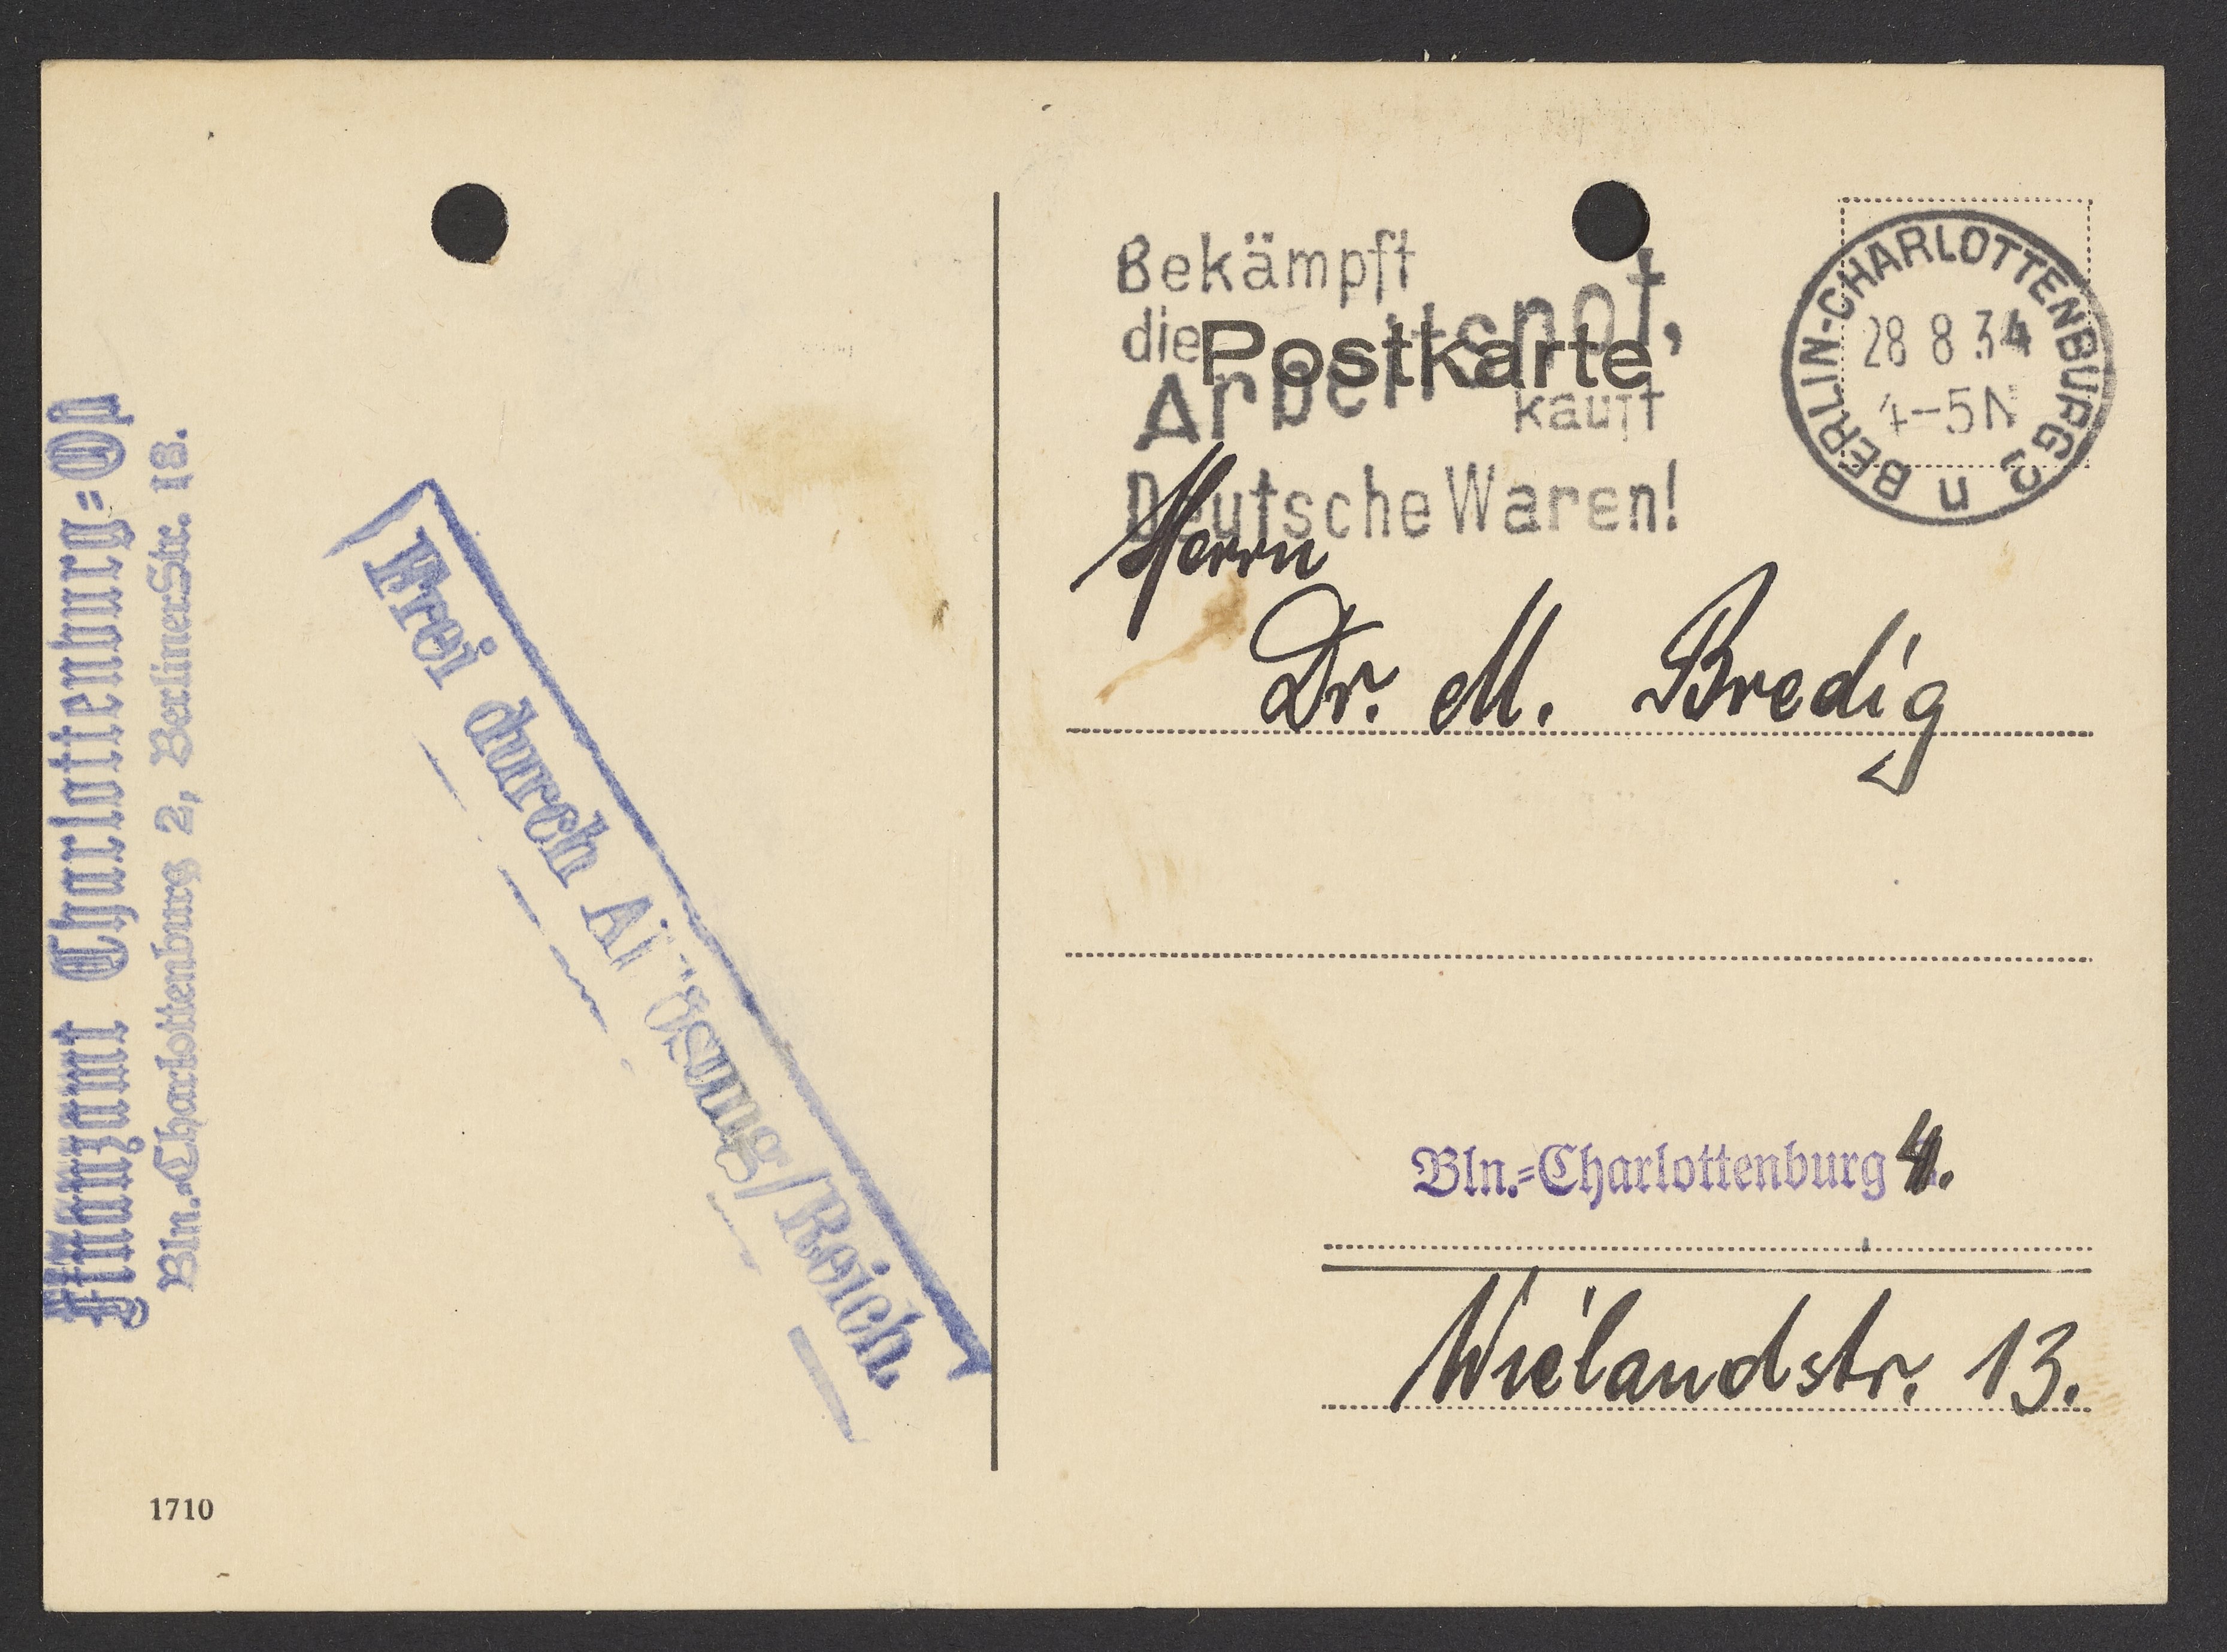 Finanzamt Charlottenburg=Ost
Bln.=Charlottenburg 2, Berliner Str. 18.
Frei durch Ablösung/Reich.
1710
Bekämpft
die
Arbeitsnot,
kauft
Deutsche Waren!
Postkarte
BERLIN-CHARLOTTENBURG 2
28 8 34
4-5N
n
Herrn
Dr. M. Bredig
Bln.=Charlottenburg 4.
Wielandstr. 13.